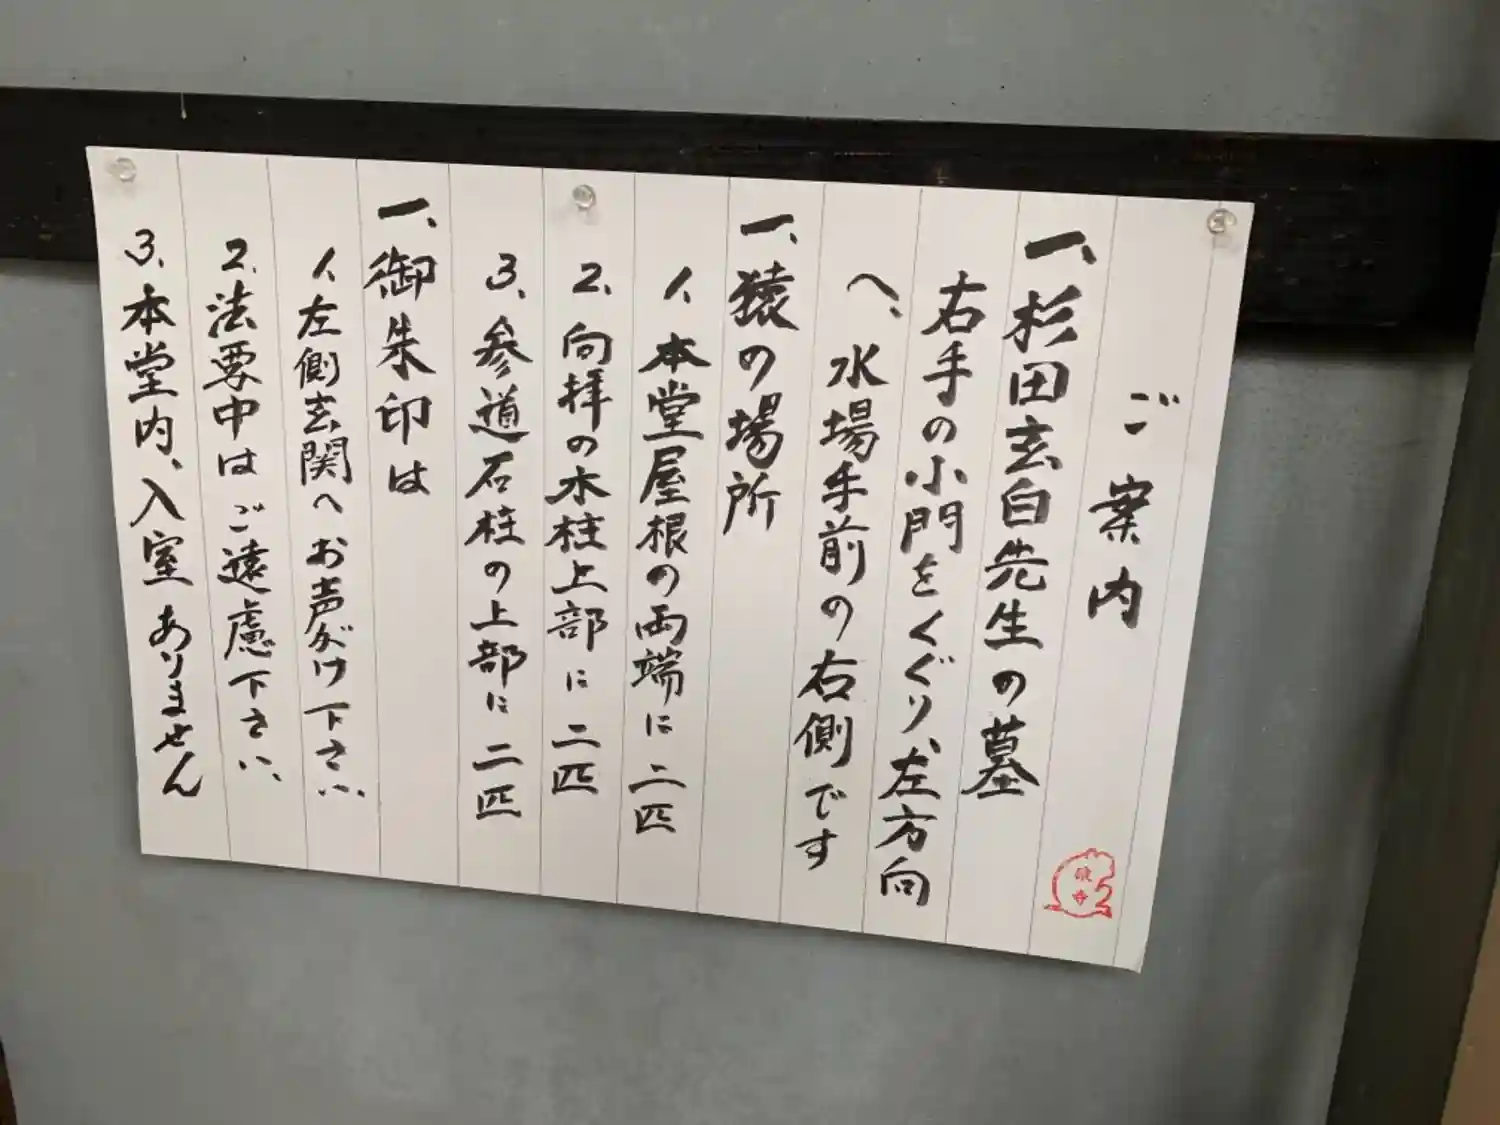 ご案内
一、杉田玄白先生の墓
右手の小門をくぐり、左方向
へ、水場手前の右側です
一、猿の場所
1、本堂屋根の両端に二匹
2、向拝の木柱上部に二匹
3、参道石柱の上部に二匹
一、御朱印は
1、左側玄関へお声がけ下さい、
2、法要中はご遠慮下さい、
3、本堂内、入室ありません